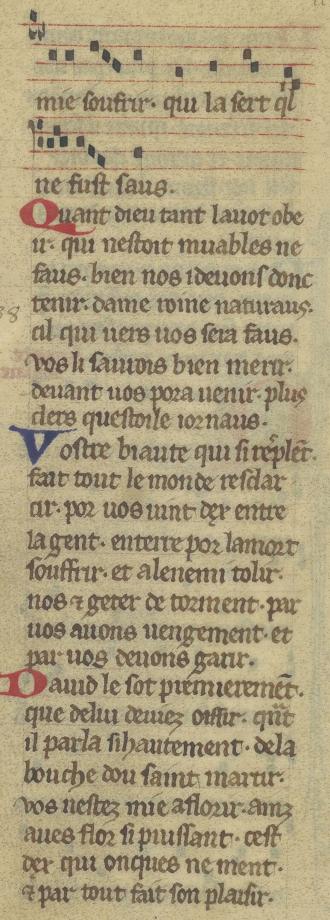 mie soufrir· qui la sert ql
ne fust saus.
Quant dieu tant lauot obe
ir· qui nestoit muables ne
faus· bien nos i deuons donc
tenir· dame roine naturaus·
cil qui uers uos sera faus.
vos li saurois bien merir·
deuant uos pora uenir· plus
clers questoile iornaus·
Vostre biaute qui si resplēt·
fait tout le monde resclar
cir· por uos uint dex entre
la gent· en terre por la mort
souffrir· et a lenemi tolir·
nos ⁊ geter de torment· par
uos auons uengement· et
par uos deuons garir.
Dauid le sot premieremēt·
que de lui deuiez oissir· qn̄t
il parla si hautement· de la
bouche dou saint martir·
vos nestez mie a florir· ainz
aues flor si puissant· cest
dex qui onques ne ment·
⁊ par tout fait son plaisir·